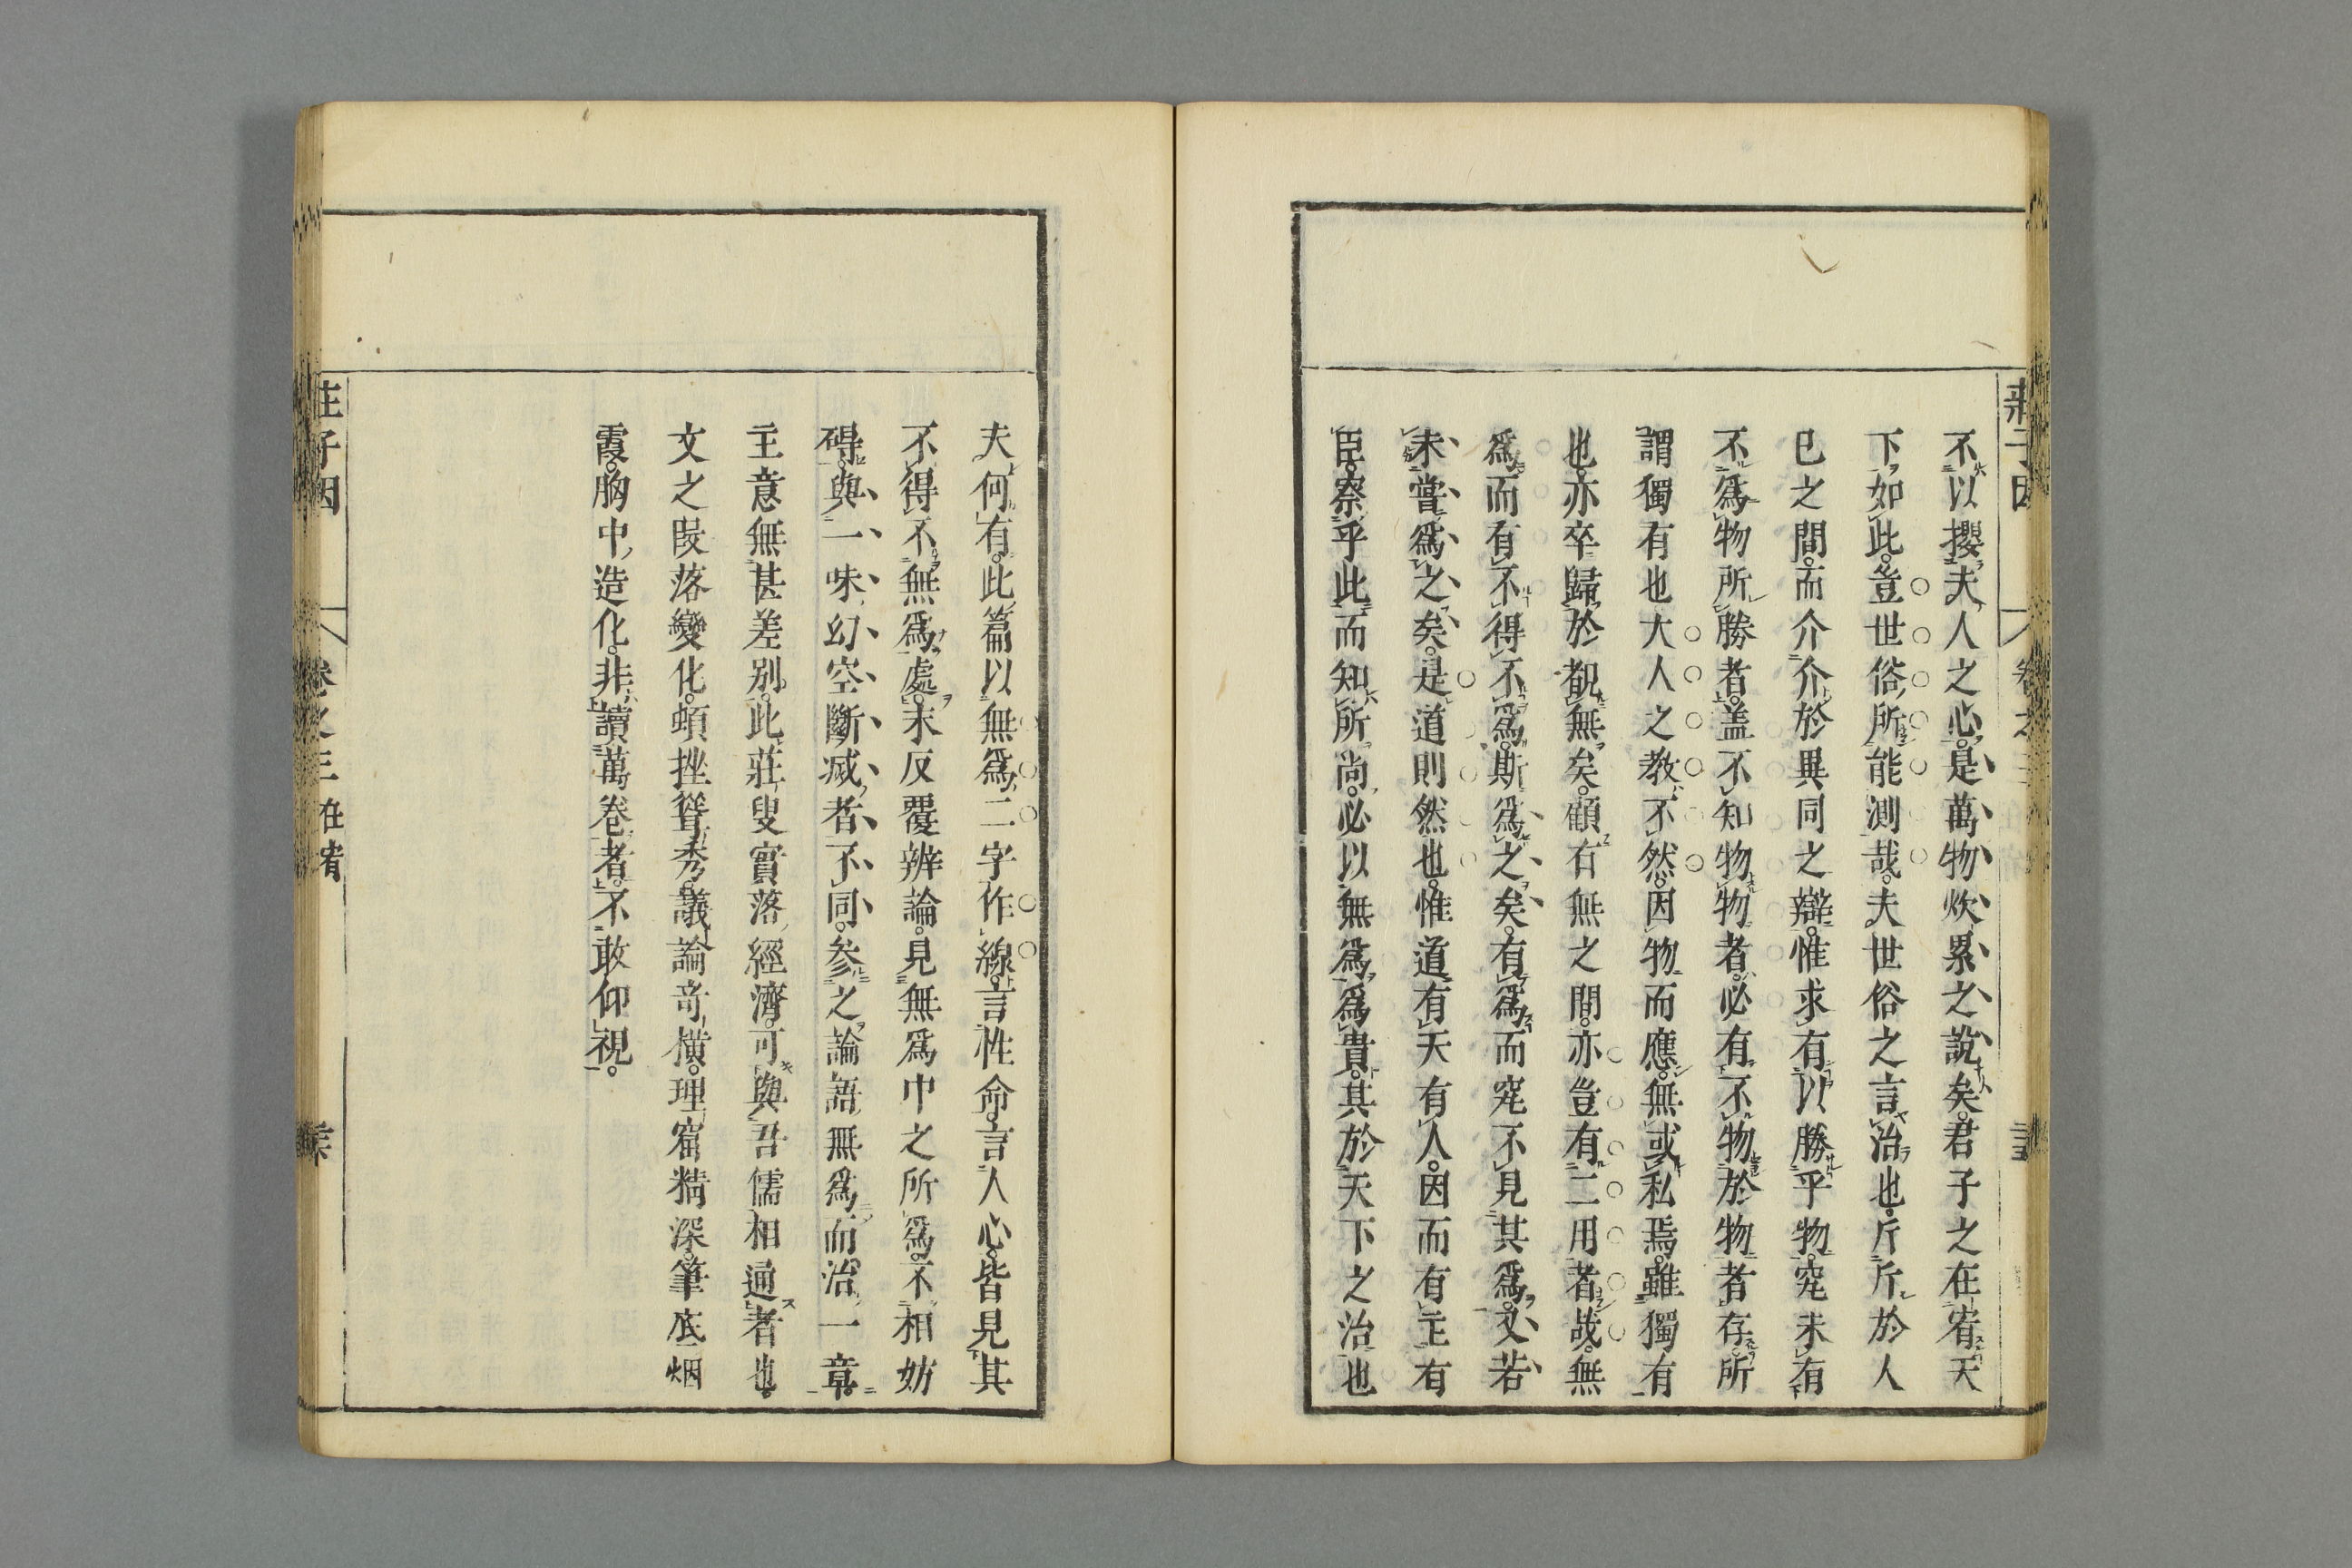 不以攖夫人之心是萬物炊累之說矣君子之在宥天
下如此豈世俗所能測哉夫世俗之言治也斤斤於人
巳之間而介介於異同之辯惟求有以勝乎物究未有
不爲物所勝者蓋不知物物者必有不物於物者存所
謂獨有也大人之教不然因物而應無或私焉雖獨有
也亦卒歸於覩無矣顧有無之間亦豈有二用者哉無
爲而有不得不爲斯爲之矣有爲而究不見其爲又若
未嘗爲之矣是道則然也惟道有天有人因而有主有
臣察乎此而知所尚必以無爲爲貴其於天下之治也
夫何有此篇以無爲二字作線言性命言人心皆見其
不得不無爲處末反覆辨論見無爲中之所爲不相妨
碍與一味幻空斷滅者不同參之論語無爲而治一章
主意無甚差别此莊叟實落經濟可與吾儒相通者也
文之段落變化頓挫聳秀議論竒橫理窟精深筆底烟
霞胸中造化非讀萬卷者不敢仰視
莊子因
卷之三 在宥